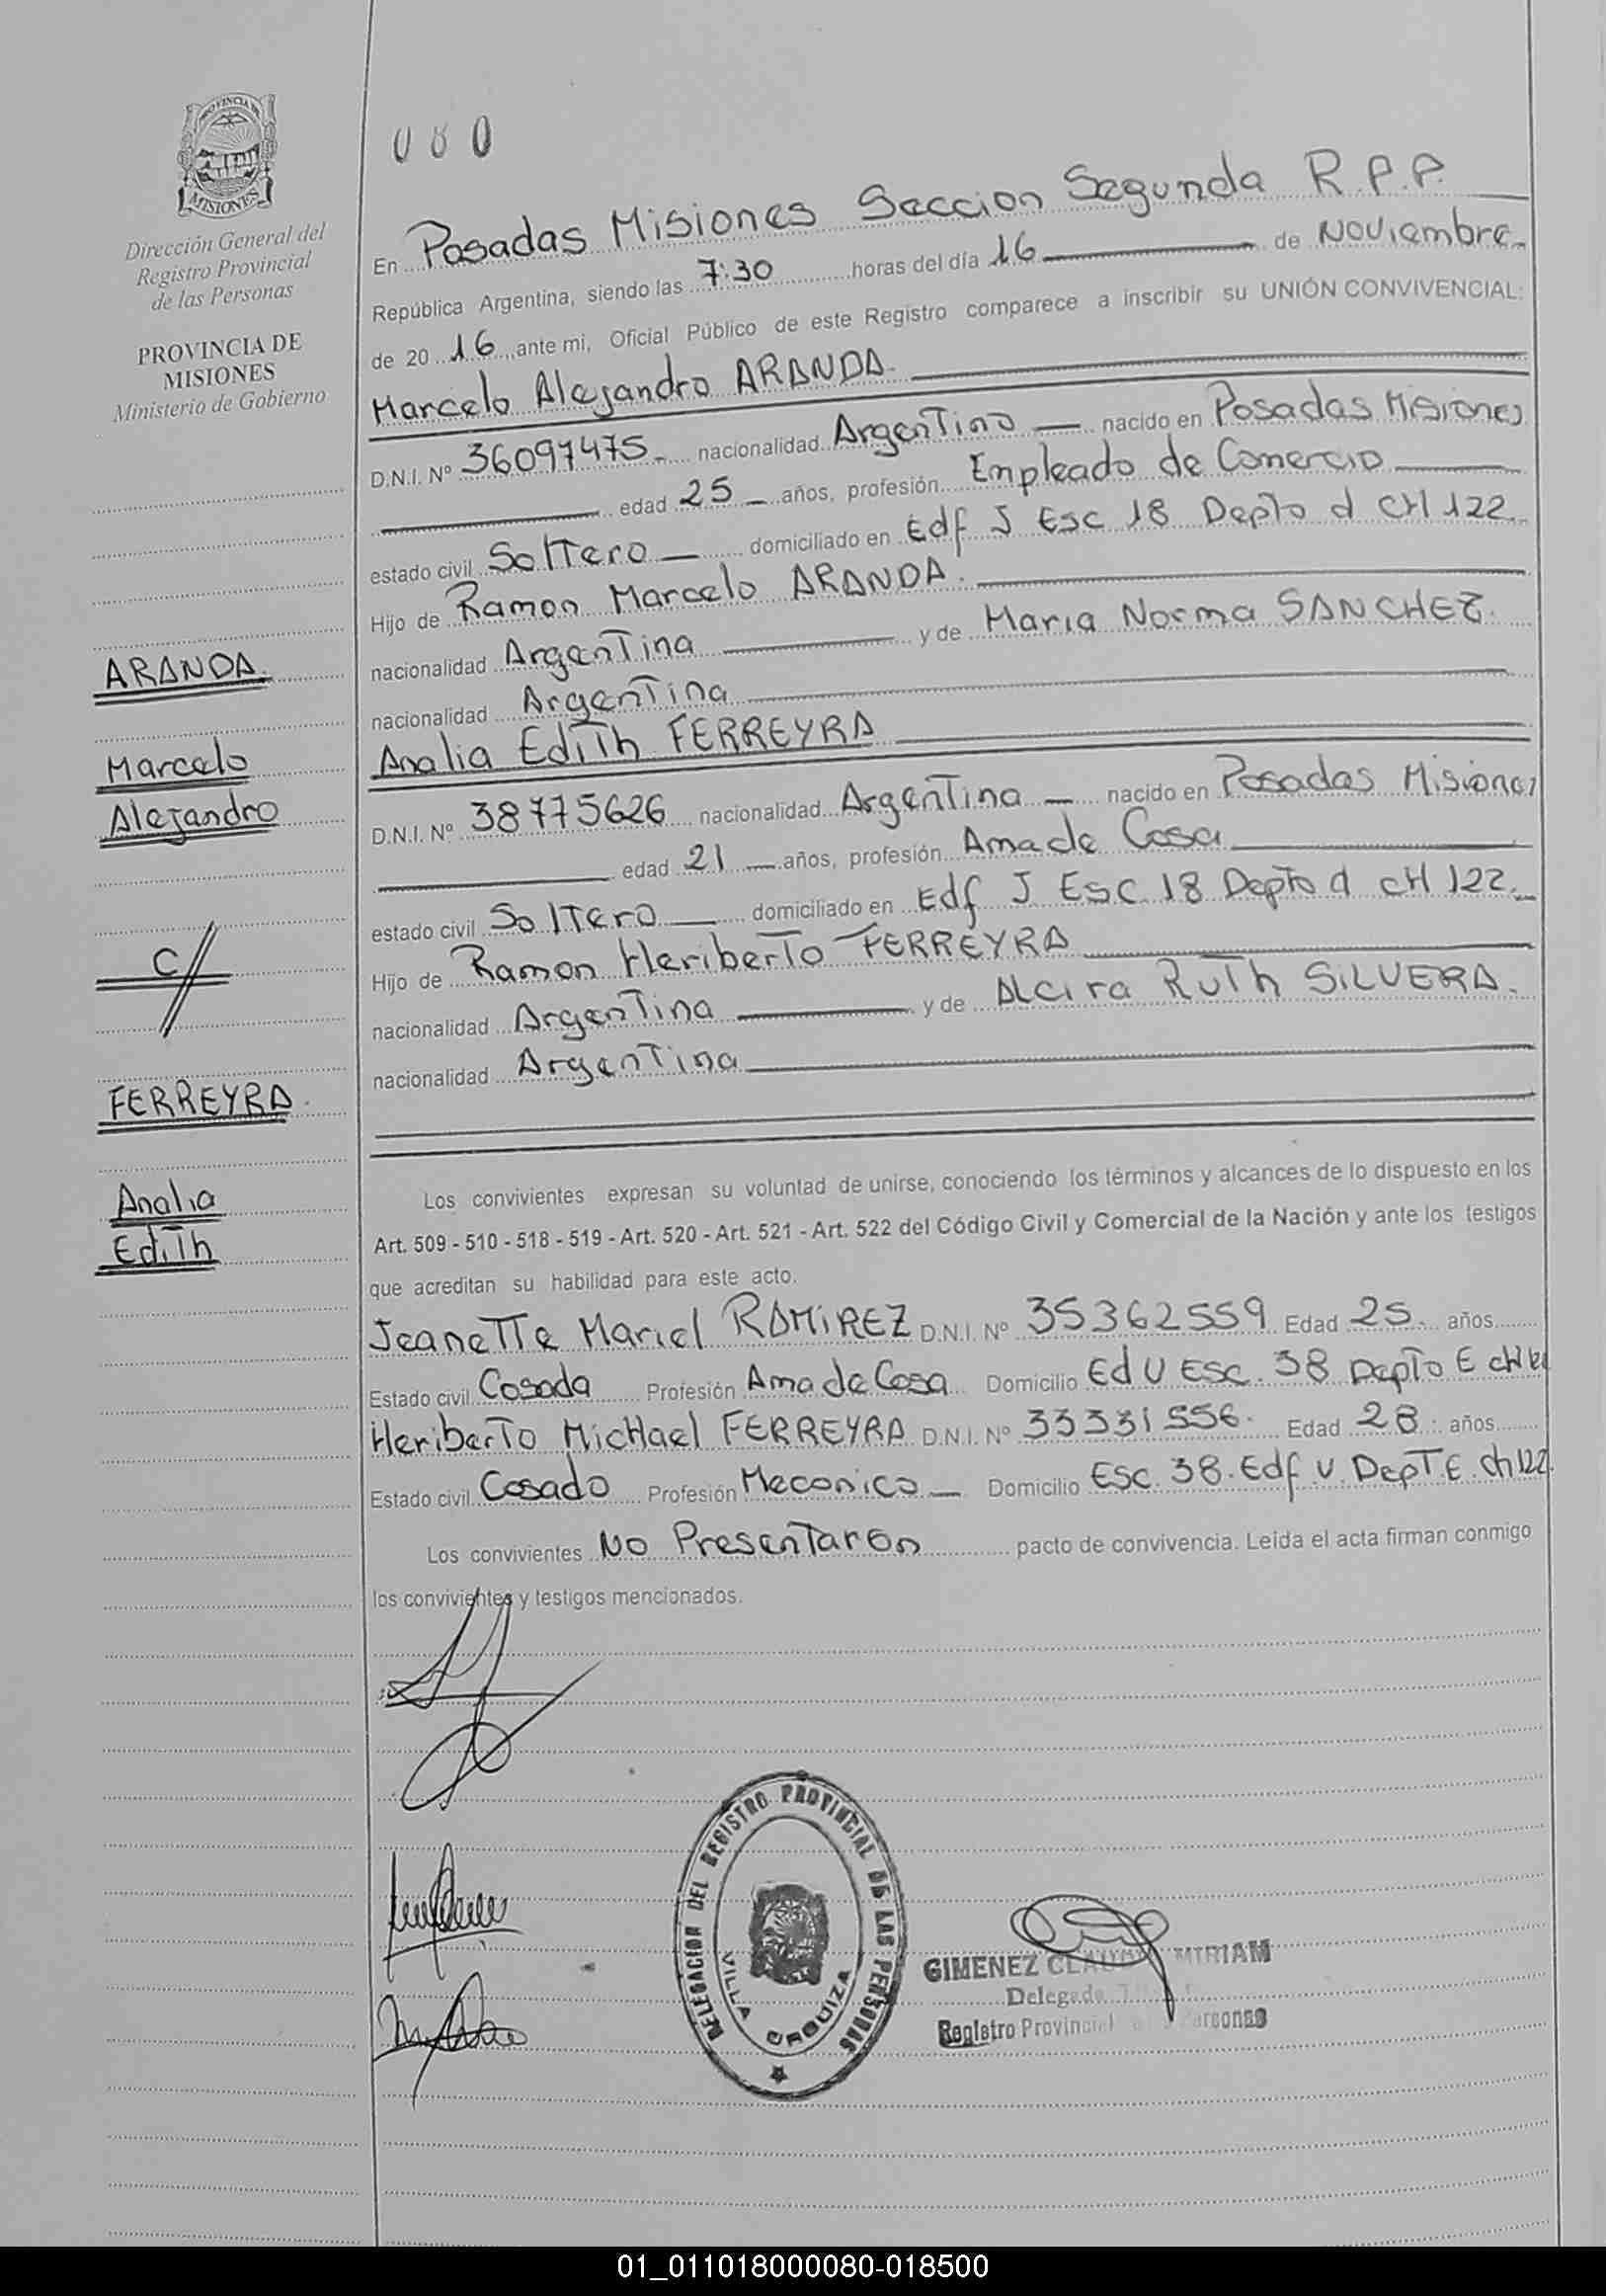 PROVINCIA DE
MISIONES
Dirección General del
Registro Provincial
de las Personas
PROVINCIA DE
MISIONES
Ministerio de Gobierno
ARANDA.
Marcelo
Alejandro
C/
FERREYRA.
Analia
Edith
080
En Posadas Misiones Seccion Segunda R.P.P.
República Argentina, siendo las 7:30 horas del día 16 de Noviembre
de 20 16 ante mi, Oficial Público de este Registro comparece a inscribir su UNIÓN CONVIVENCIAL:
Marcelo Alejandro ARANDA.
D.N.I. Nº 36097475 nacionalidad Argentino nacido en Posadas Misiones
edad 25 años, profesión Empleado de Comercio
estado civil Soltero domiciliado en Edf J Esc 18 Depto d CH 122
Hijo de Ramon Marcelo ARANDA.
nacionalidad Argentina y de Maria Norma SANCHEZ.
nacionalidad Argentina
Analia Edith FERREYRA
D.N.I. Nº 38775626 nacionalidad Argentina nacido en Posadas Misiones
edad 21 años, profesión Ama de Casa
estado civil Soltero domiciliado en Edf J Esc 18 Depto d CH 122.
Hijo de Ramon Heriberto FERREYRA
nacionalidad Argentina y de Alcira Ruth SILVERA.
nacionalidad Argentina
Los convivientes expresan su voluntad de unirse, conociendo los términos y alcances de lo dispuesto en los
Art. 509 - 510 - 518 - 519 - Art. 520 - Art. 521 - Art. 522 del Código Civil y Comercial de la Nación y ante los testigos
que acreditan su habilidad para este acto.
Jeanette Mariel RAMIREZ D.N.I. Nº 35362559 Edad 25. años
Estado civil Casada Profesión Ama de Casa Domicilio Ed U Esc. 38 Depto E CH
Heriberto Michael FERREYRA D.N.I. Nº 33331556. Edad 28 años
Estado civil Casado Profesión Mecanico Domicilio Esc. 38. Edf U. Dept E. ch 122.
Los convivientes No Presentaron pacto de convivencia. Leída el acta firman conmigo
los convivientes y testigos mencionados.
DELEGACION DEL REGISTRO PROVINCIAL DE LAS PERSONAS
VILLA URQUIZA
GIMENEZ MIRIAM
Registro Provincial Personas
01_011018000080-018500